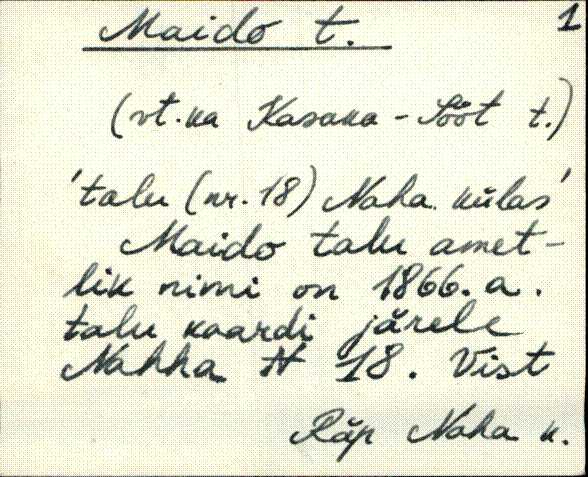 Maido t. 1
(vt. ka Kasaka - Sööt t.)
'talu (nr. 18) Naha külas'
Maido talu amet-
lik nimi on 1866. a.
talu kaardi järele
Nahha N 18. Vist
Räp Naha k.